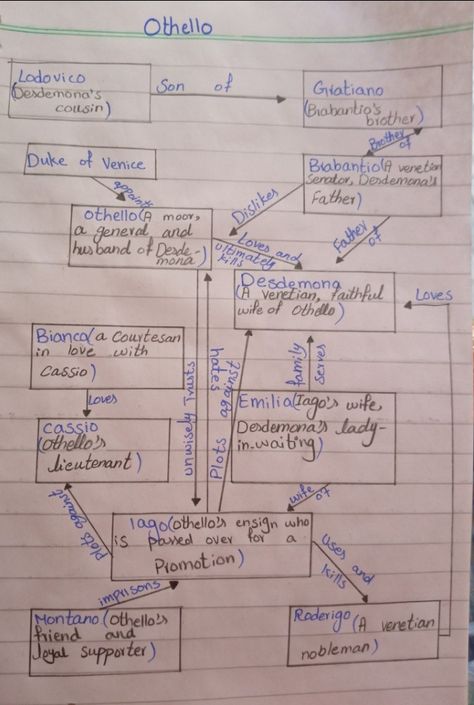 Othello
Lodovico
(Desdemona's
cousin)
Son of
Gratiano
(Brabantio's
brother)
Brother
of
Duke of Venice
appoints
Brabantio(A venetian
Senator, Desdemona's
Father)
Dislikes
Father
of
Othello(A moor,
a general and
husband of Desde-
mona)
Loves and
ultimately
kills
Desdemona
(A Venetian, faithful
wife of Othello)
Loves
Bianca(a Courtesan
in love with
Cassio)
Loves
unwisely Trusts
hates
Plots against
family
serves
Cassio
(Othello's
lieutenant)
Emilia(Iago's wife,
Desdemona's lady-
in-waiting)
wife of
plots against
Iago(Othello's ensign who
is passed over for a
Promotion)
imprisons
Uses and
kills
Montano(Othello's
friend and
loyal supporter)
Roderigo(A venetian
nobleman)